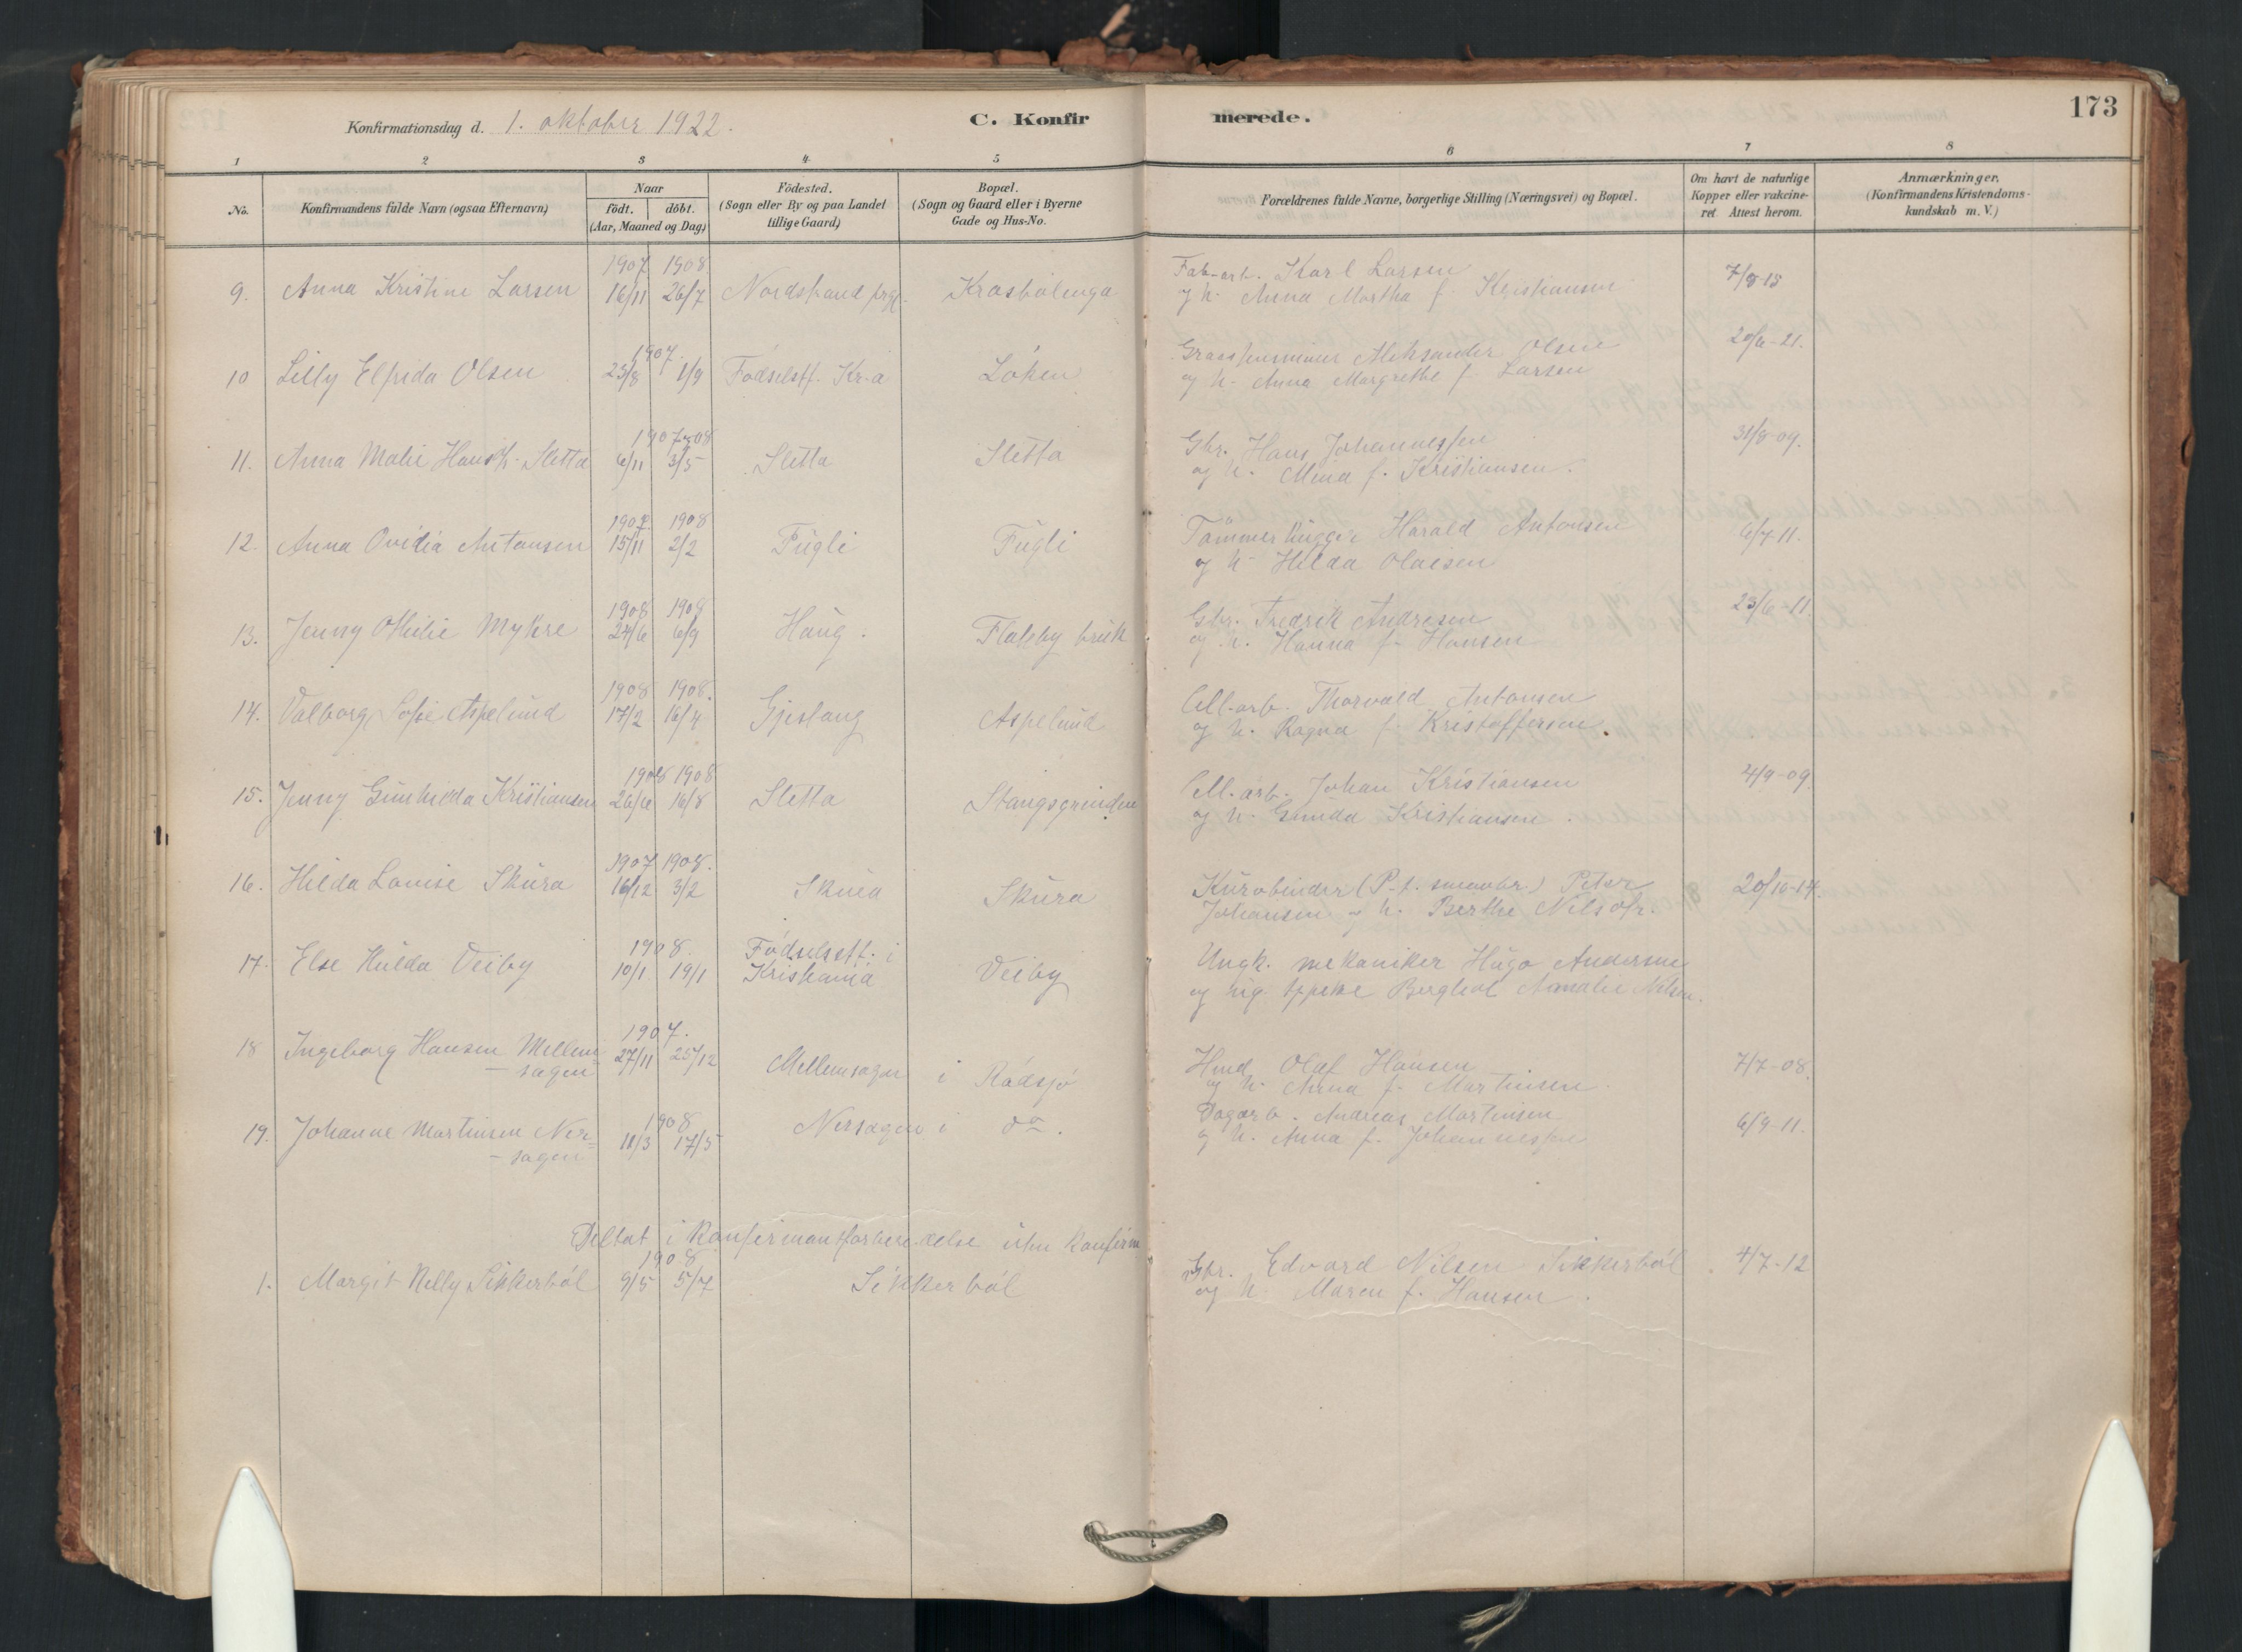 173
Konfirmationsdag d. 1. oktober 1922.
C. Konfirmerede.
1 2 3 4 5 6 7 8
No.
Konfirmandens fulde Navn (ogsaa Efternavn)
Naar
födt. döbt.
(Aar, Maaned og Dag)
Födested.
(Sogn eller By og paa Landet
tillige Gaard)
Bopæl.
(Sogn og Gaard eller i Byerne
Gade og Hus-No.
Forældrenes fulde Navne, borgerlige Stilling (Næringsvei) og Bopæl.
Om havt de naturlige
Kopper eller vakcine-
ret. Attest herom.
Anmærkninger.
(Konfirmandens Kristendoms-
kundskab m. V.)
1907 1908
9. Anna Kristine Larsen 16/11 26/7 Nordstrand prgj. Krosbölenga
Fab-arb. Karl Larsen 7/8-15
og h. Anna Martha f. Kristiansen
1907.
10 Lilly Elfrida Olsen 23/8 1/9 Födselsst. Kr.a Löken
Aleksander Olsen 20/6-21.
og h. Anna Margrethe f. Larsen
1907-08
11. Anna Malie Hansen Sletta 6/11 3/5 Sletta Sletta
Gbr. Hans Johannessen 31/8-09.
og h. Mina f. Kristiansen.
1907. 1908
12. Anna Ovidia Antonsen 15/11 2/2 Fugli Fugli
Tömmerhugger Harald Antonsen 6/7-11.
og h. Hilda Olaisen
1908 1908
13. Jenny Othilie Mykre 24/6 6/9 Haug. Flateby bruk
Gbr. Fredrik Andresen 23/6-11.
og h. Hanna f. Hansen
1908 1908.
14. Valborg Sofie Aspelund 17/2 16/4 Gjeslang Aspelund
Cell-arb. Thorvald Antonsen
og h. Ragna f. Kristoffersen.
1908 1908
15. Jenny Gunhilda Kristiansen 26/6 16/8 Sletta Stangsgrinden
Cell-arb. Johan Kristiansen 4/9-09.
og h. Gunda Kristiansen.
1907 1908.
16. Hilda Lovise Skura 16/12 3/2 Skura Skura
Kurvbinder (P.t. smaabr.) Peter 20/10-14.
Johansen og h. Berthe Nilsdtr.
1908. Födselsstt. i
17. Else Hulda Veiby 10/1 19/1 Kristiania Veiby
Ungk. mekaniker Hugo Andersen
og pige Bergliot Amalie Nilsen.
1907.
18 Ingeborg Hansen Mellem- 27/11 25/12 Mellemsagen i Rådsjö
– sagen
Hmd. Olaf Hansen 7/7-08.
og h. Anna f. Martinsen.
1908
19. Johanne Martinsen Ner- 11/3 17/5 Nersagen i do.
– sagen
Dagarb. Andreas Martinsen 6/9-11.
og h. Anna f. Johannessen
Deltat i konfirmantforberedelse uten konfirm.
1908
1. Margit Nelly Sikkerböl 9/5 5/7 Sikkerböl
Gbr. Edvard Nilsen Sikkerböl. 4/7-12
og h. Maren f. Hansen.